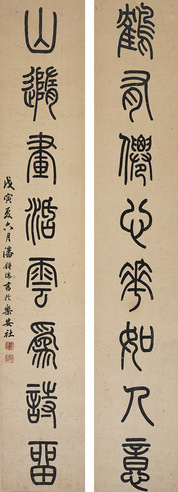 鶴有僊心華如人意
山隨畫活雲為詩留
戊寅夏六月潘書於樂安社